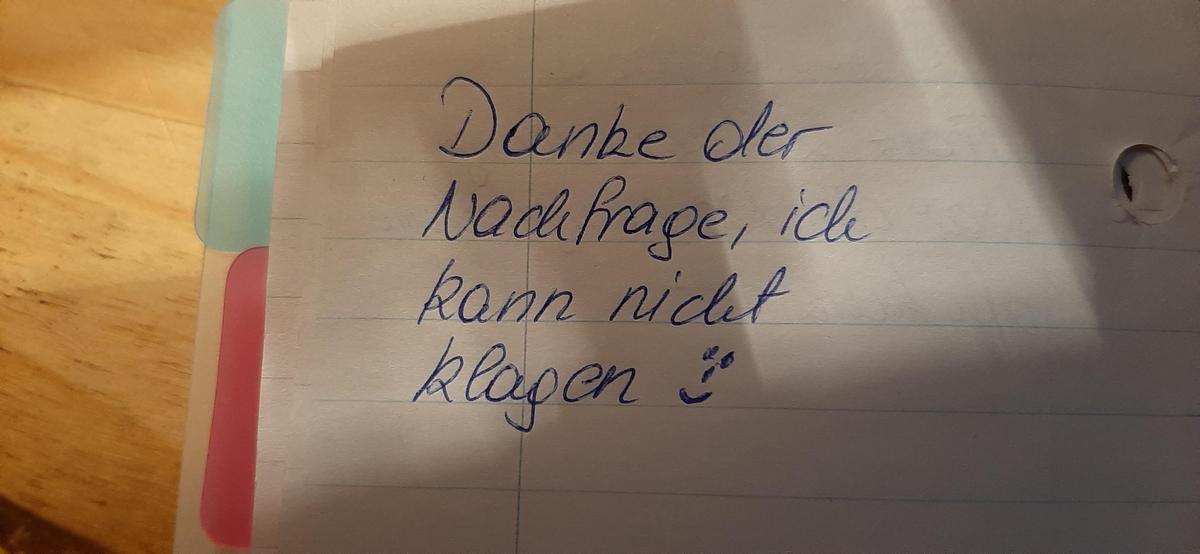 Danke der
Nachfrage, ich
kann nicht
klagen :)